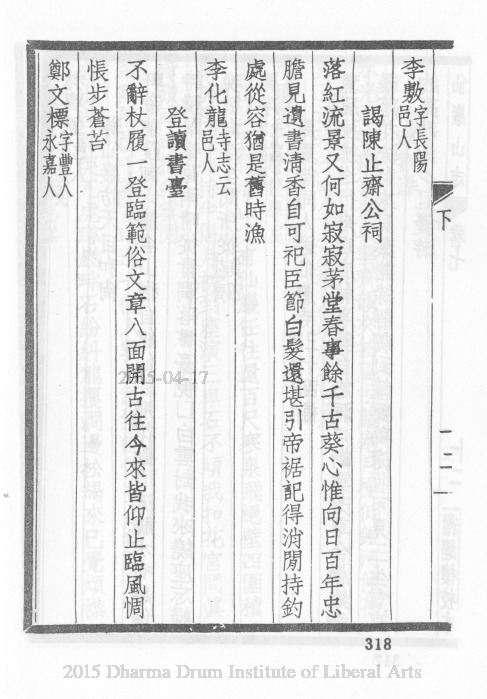 李敷字長陽邑人
謁陳止齋公祠
落紅流景又何如寂寂茅堂春事餘千古葵心惟向日百年忠
膽見遺書清香自可祀臣節白髮還堪引帝裾記得消閒持釣
處從容猶是舊時漁
李化龍寺志云邑人
登讀書臺
不辭杖履一登臨範俗文章八面開古往今來皆仰止臨風惆
悵步蒼苔
鄭文標字豐人永嘉人
下
一二一
318
2015-04-17
2015 Dharma Drum Institute of Liberal Arts